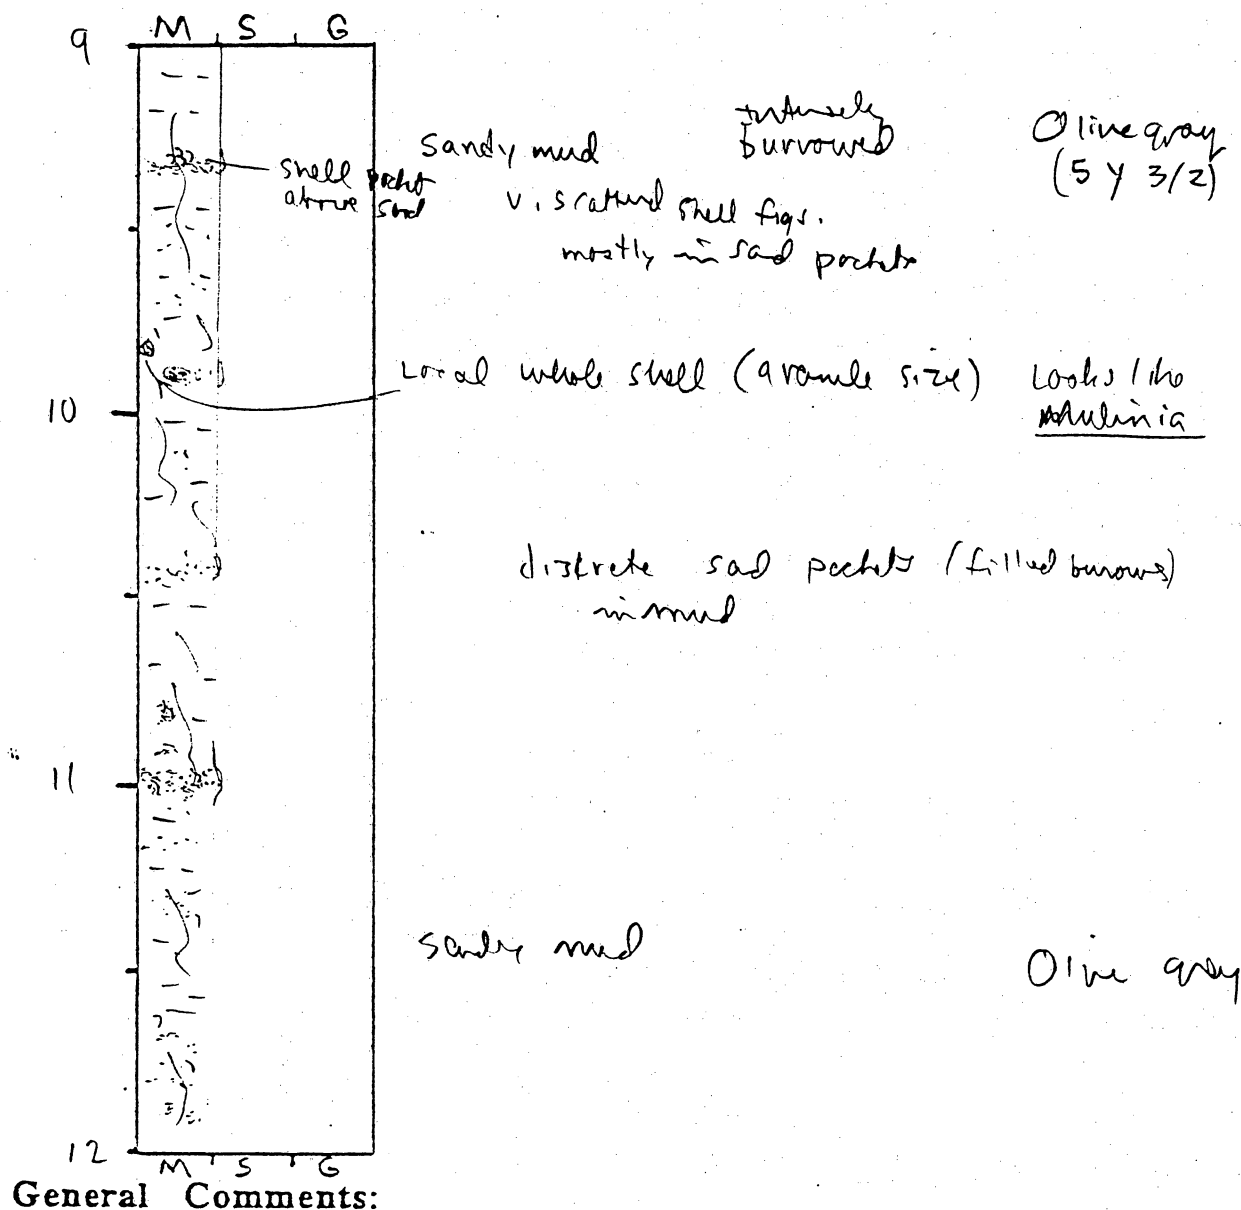 M S G
9
Sandy mud
intensely
burrowed
Olive gray
(5 Y 3/2)
shell pocket
above sand
v. scattered shell frgs.
mostly in sand pockets
Local whole shell (granule size)
Looks like
Mulinia
10
discrete sand pockets (filled burrows)
in mud
11
Sandy mud
Olive gray
12
M S G
General Comments: